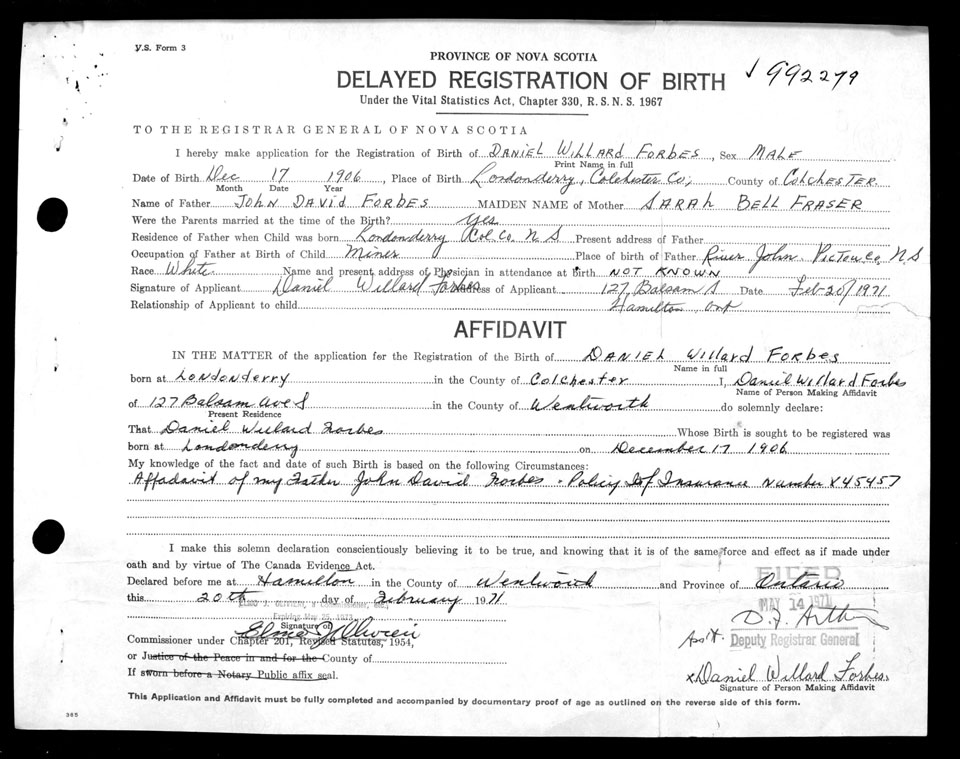 V.S. Form 3
PROVINCE OF NOVA SCOTIA
DELAYED REGISTRATION OF BIRTH
992279
Under the Vital Statistics Act, Chapter 330, R.S.N.S. 1967
TO THE REGISTRAR GENERAL OF NOVA SCOTIA
I hereby make application for the Registration of Birth of DANIEL WILLARD FORBES, Sex MALE
Print Name in full
Date of Birth Dec 17 1906, Place of Birth Londonderry, Colchester Co; County of COLCHESTER
Month Date Year
Name of Father JOHN DAVID FORBES MAIDEN NAME of Mother SARAH BELL FRASER
Were the Parents married at the time of the Birth? Yes
Residence of Father when Child was born Londonderry Col. Co. N S Present address of Father
Occupation of Father at Birth of Child Miner Place of birth of Father River John Pictou Co. N.S
Race White Name and present address of Physician in attendance at Birth NOT KNOWN
Signature of Applicant Daniel Willard Forbes Address of Applicant 127 Balsam S Date Feb-20/1971
Relationship of Applicant to child Hamilton, Ont
AFFIDAVIT
IN THE MATTER of the application for the Registration of the Birth of DANIEL Willard FORBES
Name in full
born at LONDONDERRY in the County of COLCHESTER I, Daniel Willard Forbes
Name of Person Making Affidavit
of 127 Balsam Ave S in the County of Wentworth do solemnly declare:
Present Residence
That Daniel Willard Forbes Whose Birth is sought to be registered was
born at Londonderry on December 17 1906
My knowledge of the fact and date of such Birth is based on the following Circumstances:
Affadavit of my Father John David Forbes - Policy of Insurance Number X45457
I make this solemn declaration conscientiously believing it to be true, and knowing that it is of the same force and effect as if made under
oath and by virtue of The Canada Evidence Act.
FILED
Declared before me at Hamilton in the County of Wentworth and Province of Ontario
this 20th day of February 1971
MAY 14 1971
Expiring May 25, 1973
Signature of
Commissioner under Chapter 201, Revised Statutes, 1954,
Ass't. Deputy Registrar General
or Justice of the Peace in and for the County of
If sworn before a Notary Public affix seal.
x Daniel Willard Forbes.
Signature of Person Making Affidavit
This Application and Affidavit must be fully completed and accompanied by documentary proof of age as outlined on the reverse side of this form.
365